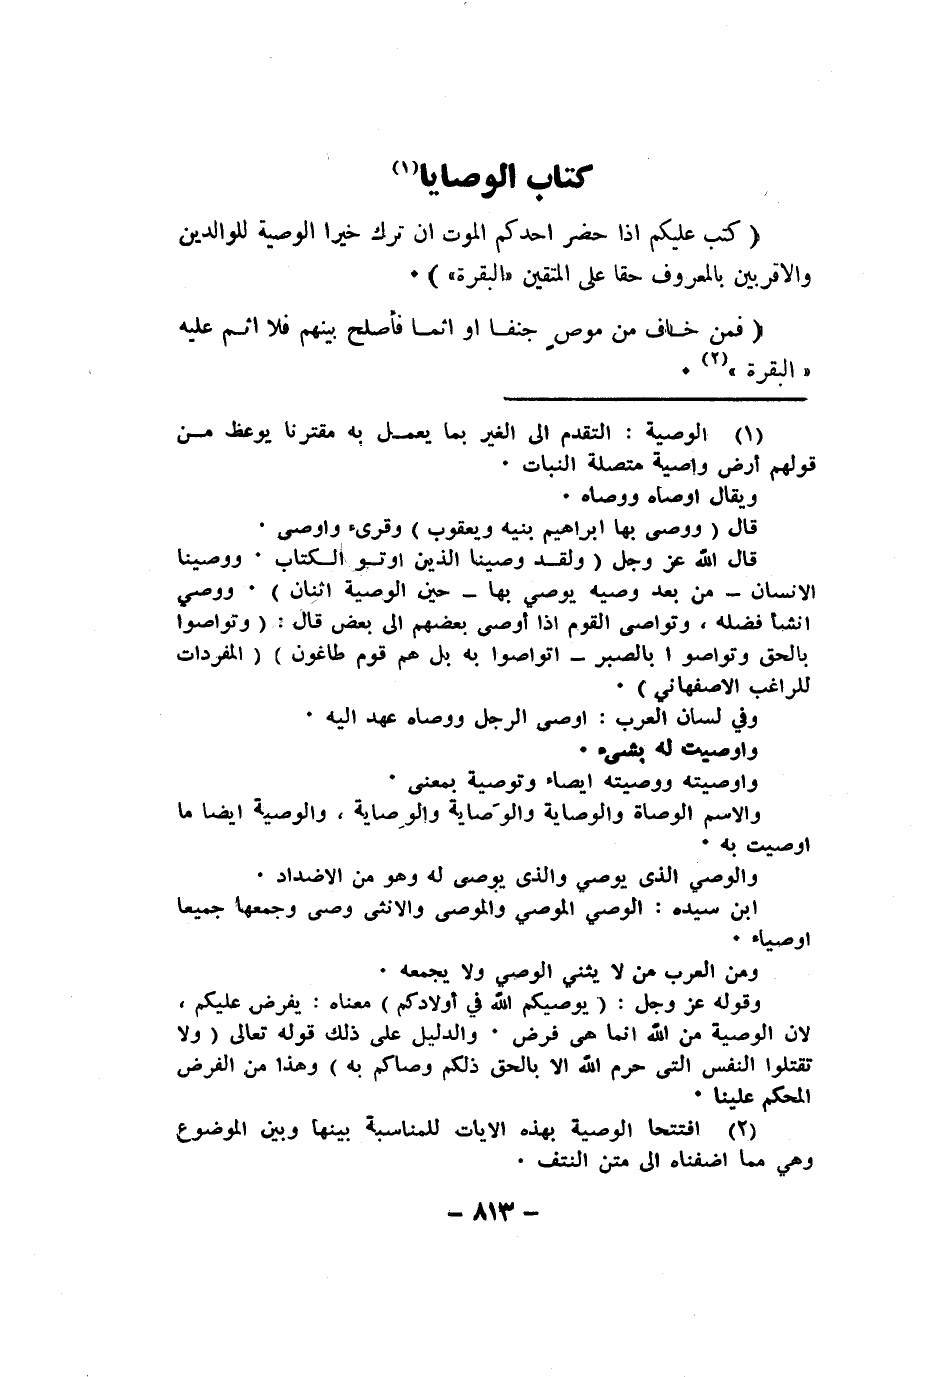 كتاب الوصايا(١)
( كتب عليكم اذا حضر احدكم الموت ان ترك خيرا الوصية للوالدين
والاقربين بالمعروف حقا على المتقين «البقرة» ) ٠
( فمن خاف من موصٍ جنفا او اثما فأصلح بينهم فلا اثم عليه
« البقرة »(٢) ٠
(١) الوصية : التقدم الى الغير بما يعمل به مقترنا يوعظ من
قولهم أرض واصية متصلة النبات ٠
ويقال اوصاه ووصاه ٠
قال ( ووصى بها ابراهيم بنيه ويعقوب ) وقرىء واوصى ٠
قال الله عز وجل ( ولقد وصينا الذين اوتو الكتاب ٠ ووصينا
الانسان – من بعد وصيه يوصي بها – حين الوصية اثنان ) ٠ ووصي
انشا فضله ، وتواصى القوم اذا أوصى بعضهم الى بعض قال : ( وتواصوا
بالحق وتواصو ا بالصبر – اتواصوا به بل هم قوم طاغون ) ( المفردات
للراغب الاصفهاني ) ٠
وفي لسان العرب : اوصى الرجل ووصاه عهد اليه ٠
واوصيت له بشىء ٠
واوصيته ووصيته ايصاء وتوصية بمعنى ٠
والاسم الوصاة والوصاية والوَصاية والوِصاية ، والوصية ايضا ما
اوصيت به ٠
والوصي الذى يوصي والذى يوصى له وهو من الاضداد ٠
ابن سيده : الوصي الموصي والموصى والانثى وصى وجمعها جميعا
اوصياء ٠
ومن العرب من لا يثني الوصي ولا يجمعه ٠
وقوله عز وجل : ( يوصيكم الله في أولادكم ) معناه : يفرض عليكم ،
لان الوصية من الله انما هى فرض ٠ والدليل على ذلك قوله تعالى ( ولا
تقتلوا النفس التى حرم الله الا بالحق ذلكم وصاكم به ) وهذا من الفرض
المحكم علينا ٠
(٢) افتتحا الوصية بهذه الايات للمناسبة بينها وبين الموضوع
وهي مما اضفناه الى متن النتف ٠
– ٨١٣ –